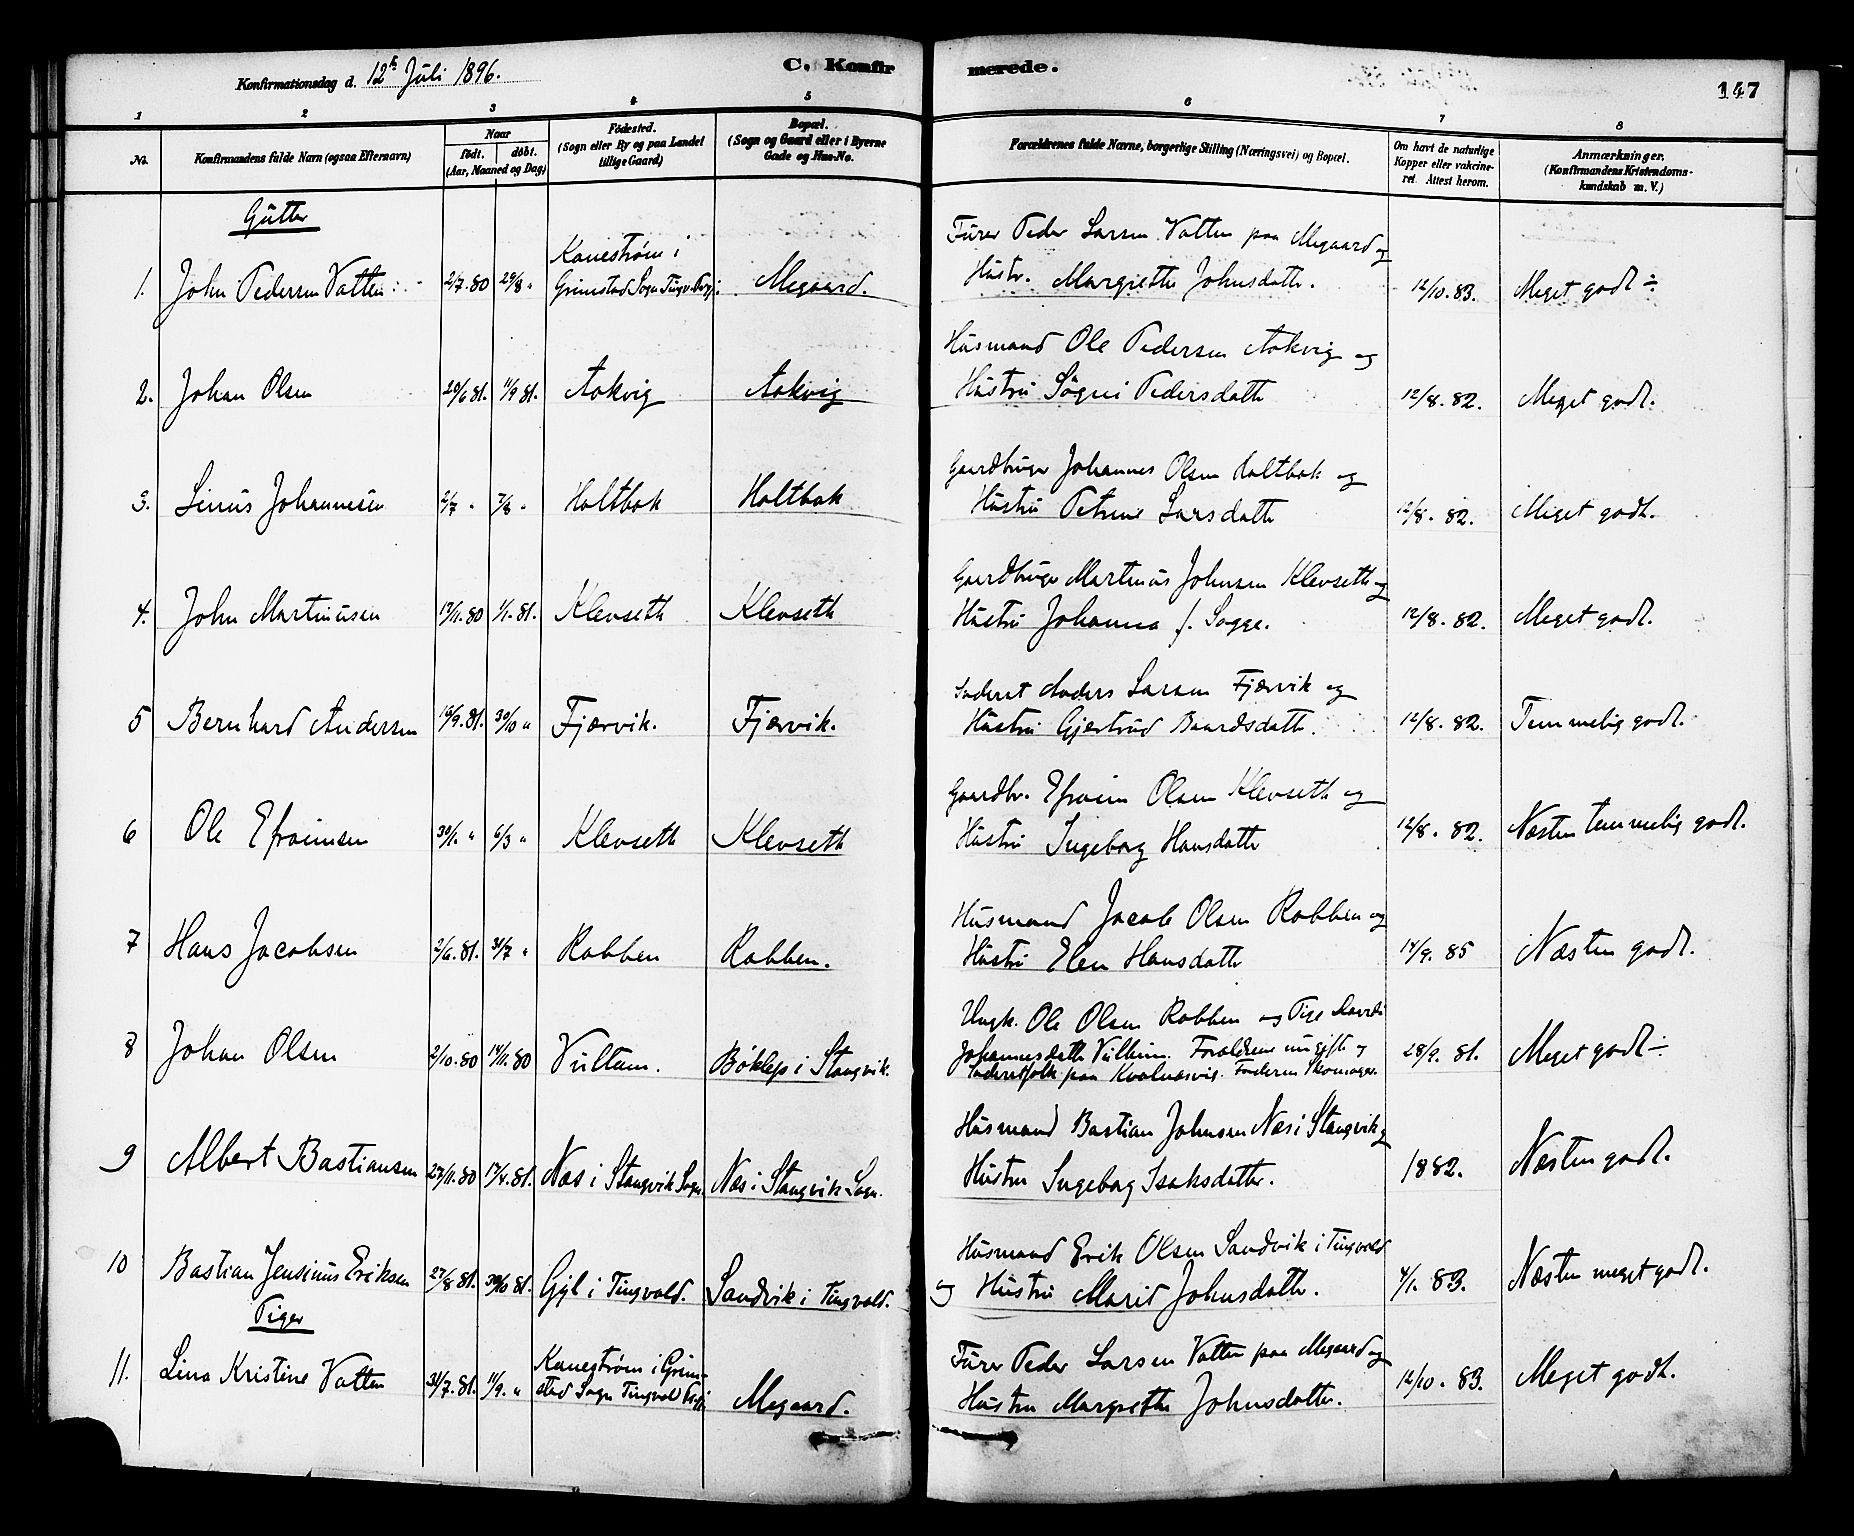 Konfirmationsdag d. 12te Juli 1896.
C. Konfirmerede.
147
1 2 3 4 5 6 7 8
No.
Konfirmandens fulde Navn (ogsaa Efternavn)
Naar
født. døbt.
(Aar, Maaned og Dag)
Fødested.
(Sogn eller By og paa Landet
tillige Gaard)
Bopæl.
(Sogn og Gaard eller i Byerne
Gade og Hus-No.
Forældrenes fulde Navne, borgerlige Stilling (Næringsvei) og Bopæl.
Om havt de naturlige
Kopper eller vakcine-
ret. Attest herom.
Anmærkninger.
(Konfirmandens Kristendoms-
kundskab m. V.)
Gutter
1. John Pedersen Vatten 2/7.80 29/8 "
Kanestrøm i
Grimstad Sogn Tingv. Prgj:
Megaard.
Peder Larsen Vatten paa Megaard og
Hustr. Margrethe Johnsdatter.
12/10.83. Meget godt ÷
2. Johan Olsen 20/6 81. 11/9 81. Aakvig Aakvig
Husmand Ole Pedersen Aakvig og
Hustru Pedersdatter
12/8.82. Meget godt.
3. Linus Johannesen 2/7 " 7/8 " Holtbak Holtbak
Gaardbruger Johannes Olsen Holtbak og
Hustru Petrine Larsdatter
12/8.82. Meget godt.
4. John Martinusen 13/11.80 1/1.81. Klevseth Klevseth
Gaardbruger Martinus Johnsen Klevseth og
Hustru Johanna f. Sogge.
12/8.82. Meget godt.
5 Bernhard Andersen 16/9.81. 30/10 " Fjærvik. Fjærvik.
Inderst Anders Larsen Fjærvik og
Hustru Gjertrud Baardsdatter.
12/8.82. Temmelig godt.
6 Ole Efraimsen 30/1. " 6/3 " Klevseth Klevseth
Gaardbr. Efraim Olsen Klevseth og
Hustru Ingeborg Hansdatter
12/8.82. Næsten temmelig godt.
7 Hans Jacobsen 2/6.81. 31/7 " Robben Robben.
Husmand Jacob Olsen Robben og
Hustru Elen Hansdatter
14/9.85 Næsten godt.
8 Johan Olsen 2/10.80 14/11.80 Vultum. i Stangvik.
Ungk. Ole Olsen Robben og Pige
Johannesdatter Forældrene ungifte og
Inderstfolk paa Kvalnæsvig.
28/9.81. Meget godt ÷
9 Albert Bastiansen 27/11.80 17/4.81. Næs i Stangvik Sogn. Næs i Stangvik Sogn.
Husmand Bastian Johnsen Næs i Stangvik og
Hustru Ingeborg Isaksdatter.
1882. Næsten godt.
10 Bastian Jensinus Eriksen 27/8 81. 30/10 81. Gyl i Tingvold. Sandvik i Tingvold.
Husmand Erik Olsen Sandvik i Tingvold
og Hustru Marit Johnsdatter.
4/1.83. Næsten meget godt.
Piger
11. Lina Kristine Vatten 31/7.81. 11/9. "
Kanestrøm i Grim-
stad Sogn Tingvold Prgj
Megaard.
Peder Larsen Vatten paa Megaard og
Hustru Margrethe Johnsdatter.
12/10.83. Meget godt.